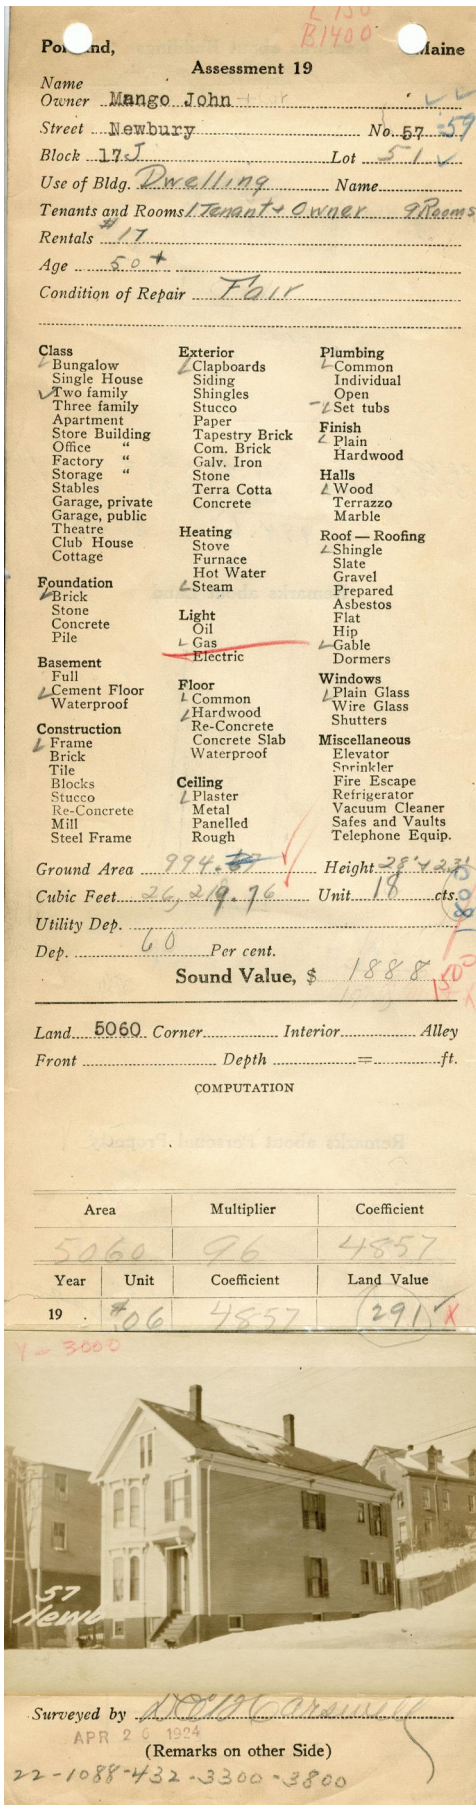 L 150
B1400
Portland, Maine
Assessment 19
Name
Owner Mango John
Street Newbury No. 57 =59
Block 17J Lot 51
Use of Bldg. Dwelling Name
Tenants and Rooms 1 Tenant + Owner 9 Rooms
Rentals #17
Age 50+
Condition of Repair Fair
Class
Bungalow
Single House
Two family
Three family
Apartment
Store Building
Office "
Factory "
Storage "
Stables
Garage, private
Garage, public
Theatre
Club House
Cottage
Foundation
Brick
Stone
Concrete
Pile
Basement
Full
Cement Floor
Waterproof
Construction
Frame
Brick
Tile
Blocks
Stucco
Re-Concrete
Mill
Steel Frame
Exterior
Clapboards
Siding
Shingles
Stucco
Paper
Tapestry Brick
Com. Brick
Galv. Iron
Stone
Terra Cotta
Concrete
Heating
Stove
Furnace
Hot Water
Steam
Light
Oil
Gas
Electric
Floor
Common
Hardwood
Re-Concrete
Concrete Slab
Waterproof
Ceiling
Plaster
Metal
Panelled
Rough
Plumbing
Common
Individual
Open
Set tubs
Finish
Plain
Hardwood
Halls
Wood
Terrazzo
Marble
Roof — Roofing
Shingle
Slate
Gravel
Prepared
Asbestos
Flat
Hip
Gable
Dormers
Windows
Plain Glass
Wire Glass
Shutters
Miscellaneous
Elevator
Sprinkler
Fire Escape
Refrigerator
Vacuum Cleaner
Safes and Vaults
Telephone Equip.
Ground Area 994. Height 28' + 23'
Cubic Feet 26,219.76 Unit 18 cts.
1800
Utility Dep.
Dep. 60 Per cent.
1500
Sound Value, $ 1888
Land 5060 Corner Interior Alley
Front Depth = ft.
COMPUTATION
Area Multiplier Coefficient
5060 96 4857
Year Unit Coefficient Land Value
19 #06 4857 291 X
Y - 3000
57
Newb
Surveyed by
APR 26 1924
(Remarks on other Side)
22-1088-432-3300-3800